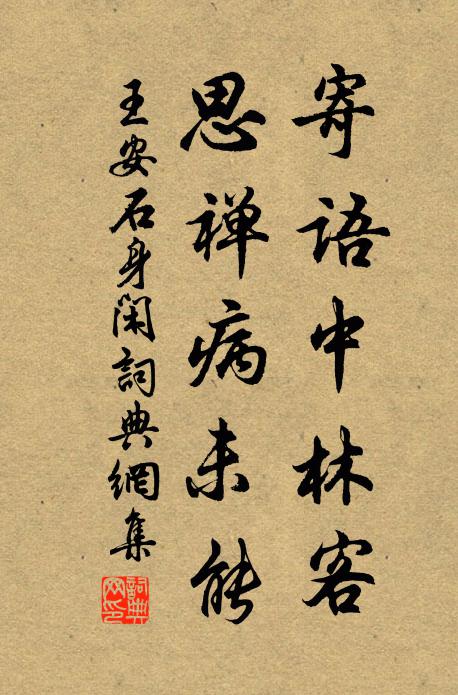 寄語中林客
思禅病未能
王安石身閑詞典網集
詞典
网印